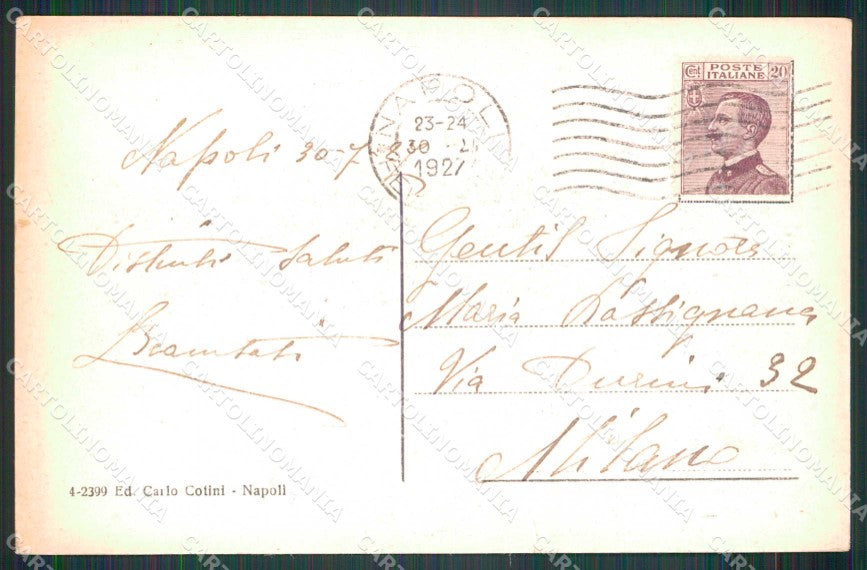 Napoli 30-7-
NAPOLI
23-24
30
1927
Cent. POSTE ITALIANE 20
Distinti saluti
Gentil Signora
Maria Passignana
Via Durini 32
Milano
4-2399 Ed. Carlo Cotini - Napoli
CARTOLINOMANIA